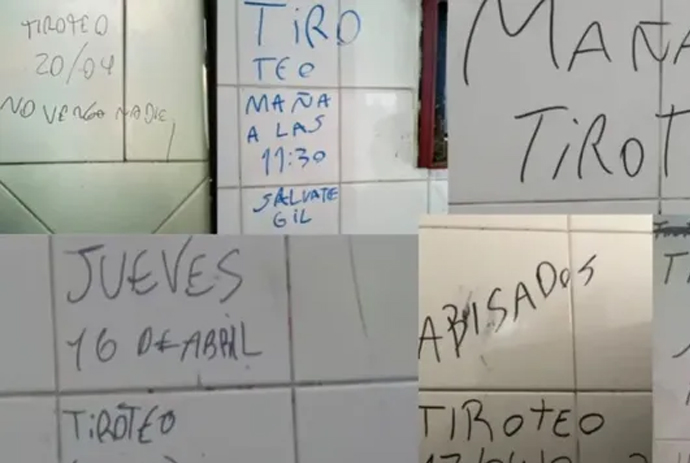 TIROTEO
20/04
NO VENGA NADIE
TIRO
TEO
MAÑA
A LAS
11:30
SALVATE
GIL
MAÑA
TIROT
JUEVES
16 DE ABRIL
TIROTEO
ABISADOS
TIROTEO